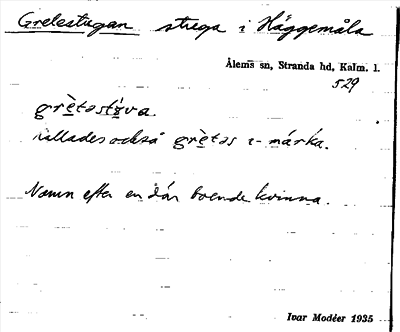 Grelestugan stuga i Häggemåla
Ålems sn, Stranda hd, Kalm. l.
529
grètəstʉ̀va.
kallades också grètəs i- márka.
Namn efter en där boende kvinna.
Ivar Modéer 1935